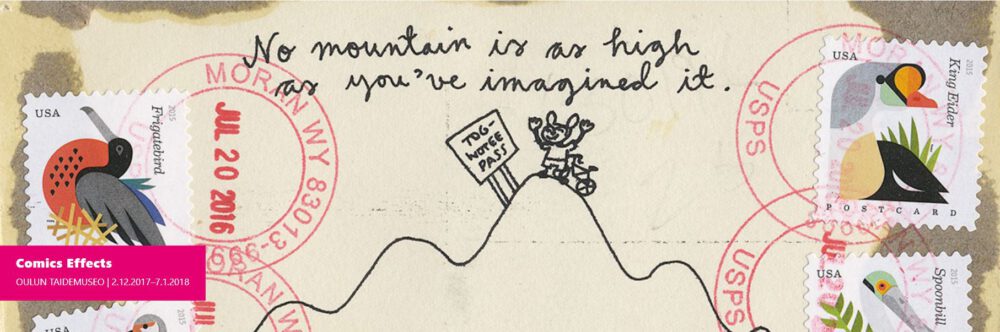 No mountain is as high
as you've imagined it.
TOG-
WOTEE
PASS
USA
2015
Frigatebird
MORAN WY 83013-
JUL 20 2016
USPS
USA
2015
King Eider
POSTCARD
MORAN WY
USPS
USA
2015
Spoonbill
USA
2015
Comics Effects
OULUN TAIDEMUSEO | 2.12.2017–7.1.2018